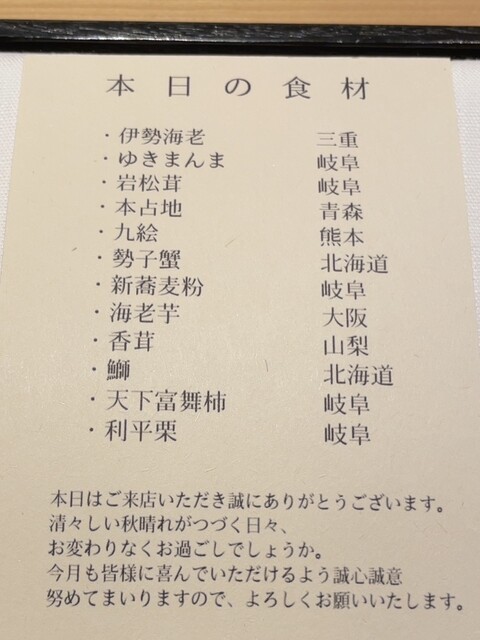 本日の食材
・伊勢海老 三重
・ゆきまんま 岐阜
・岩松茸 岐阜
・本占地 青森
・九絵 熊本
・勢子蟹 北海道
・新蕎麦粉 岐阜
・海老芋 大阪
・香茸 山梨
・鰤 北海道
・天下富舞柿 岐阜
・利平栗 岐阜
本日はご来店いただき誠にありがとうございます。
清々しい秋晴れがつづく日々、
お変わりなくお過ごしでしょうか。
今月も皆様に喜んでいただけるよう誠心誠意
努めてまいりますので、よろしくお願いいたします。